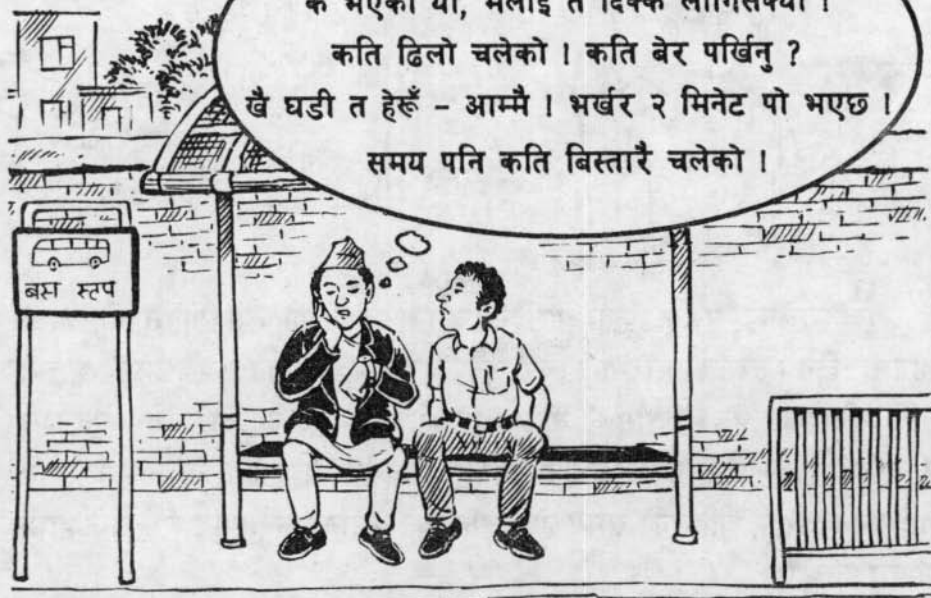 के भएको यो, मलाई त दिक्क लागिसक्यो !
कति ढिलो चलेको ! कति बेर पर्खिनु ?
खै घडी त हेरूँ – आम्मै ! भर्खर २ मिनेट पो भएछ !
समय पनि कति बिस्तारै चलेको !
बस स्टप